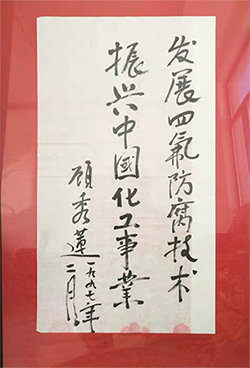 发展四氟防腐技术
振兴中國化工事業
顾秀蓮
一九九七年
二月